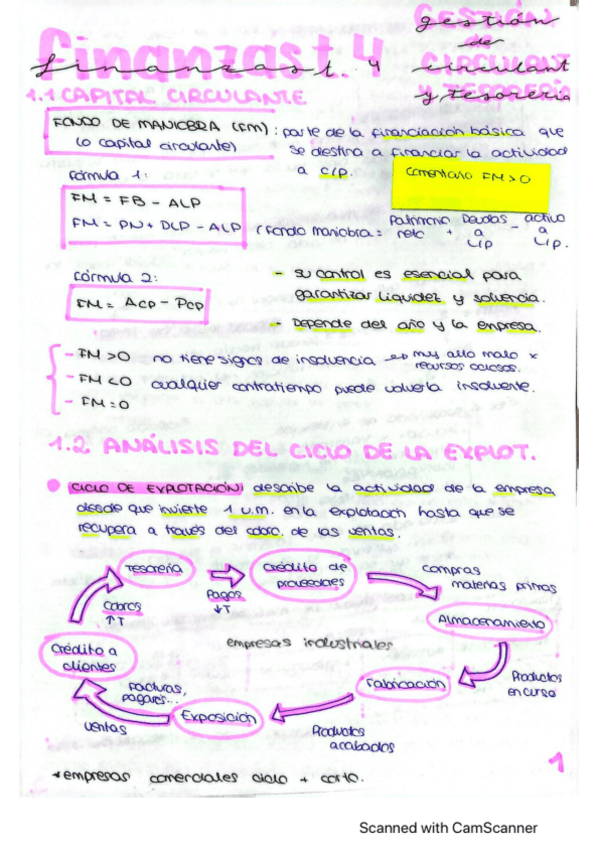 finanzas t. 4
gestión
de
circulant
y tesorería
1.1 CAPITAL CIRCULANTE
FONDO DE MANIOBRA (FM)
(o capital circulante)
: parte de la financiación básica que
se destina a financiar la actividad
a c/p.
comentario FM > 0
Fórmula 1:
FM = FB - ALP
FM = PN + DLP - ALP
(Fondo maniobra = Patrimonio neto + Deudas a L/P - activo a L/P.
Fórmula 2:
FM = ACP - PCP
- su control es esencial para
garantizar liquidez y solvencia.
- Depende del año y la empresa.
- FM > 0 no tiene signos de insolvencia → muy alto malo x
recursos ociosos.
- FM < 0 cualquier contratiempo puede volverla insolvente.
- FM = 0
1.2 ANÁLISIS DEL CICLO DE LA EXPLOT.
CICLO DE EXPLOTACIÓN: describe la actividad de la empresa
desde que invierte 1 u.m. en la explotación hasta que se
recupera a través del cobro. de las ventas.
Tesorería
Pagos
↓T
Crédito de
proveedores
compras
materias primas
Almacenamiento
Productos
en curso
Fabricación
Productos
acabados
Exposición
Facturas,
pagarés...
ventas
Crédito a
clientes
Cobros
↑T
empresas industriales
* empresas comerciales ciclo + corto.
1
Scanned with CamScanner